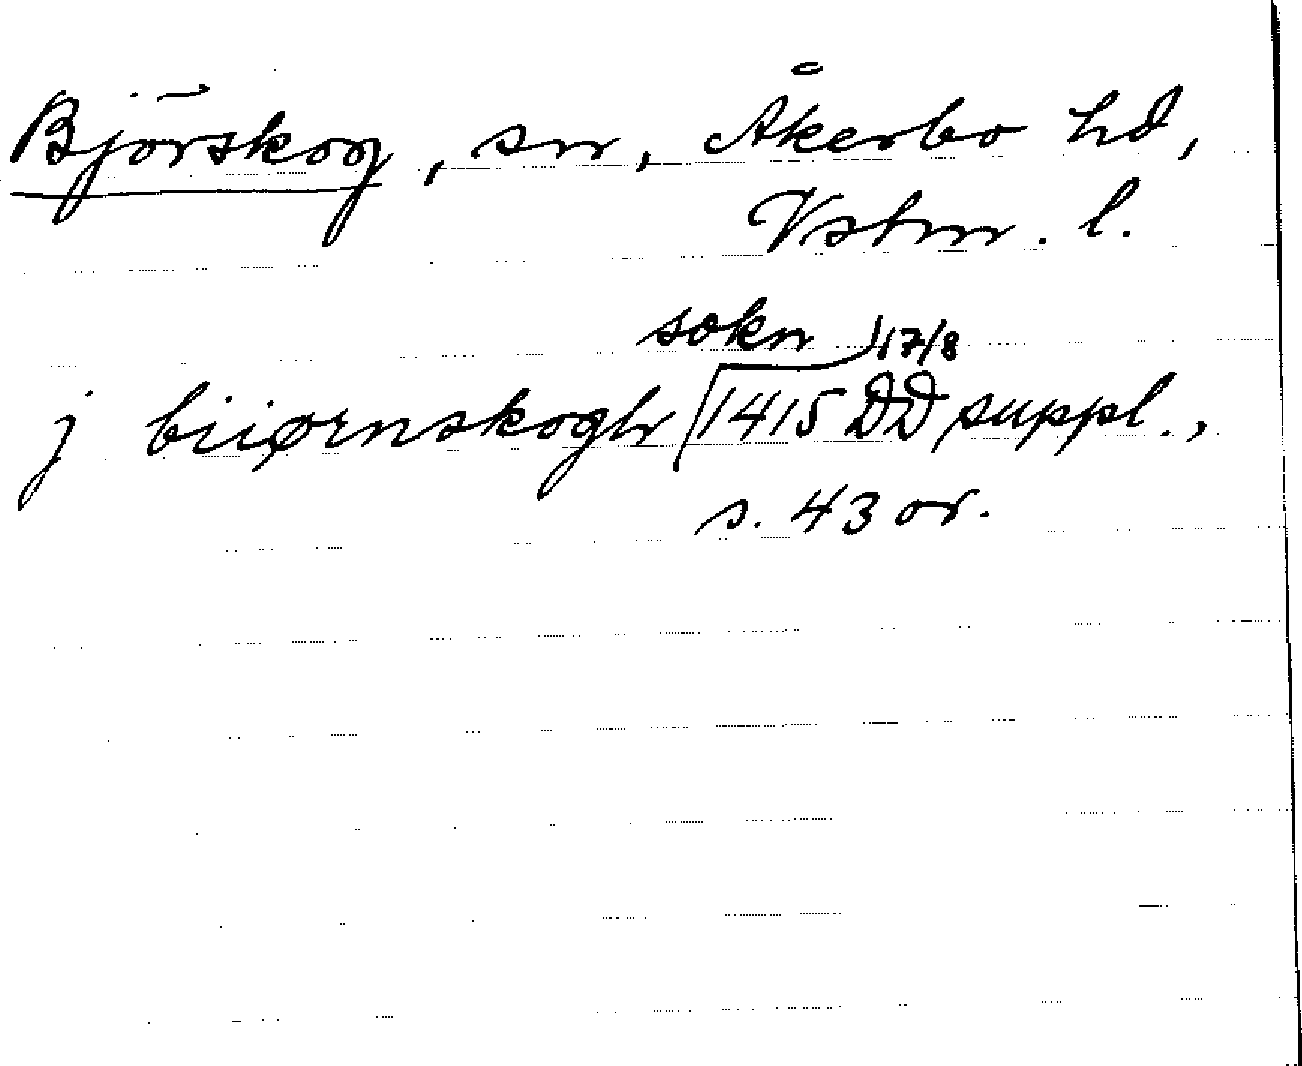 Björskog, sn, Åkerbo hd,
Vstm. l.
sokn 17/8
j biiørnskogh 1415 DD suppl.,
s. 43 or.